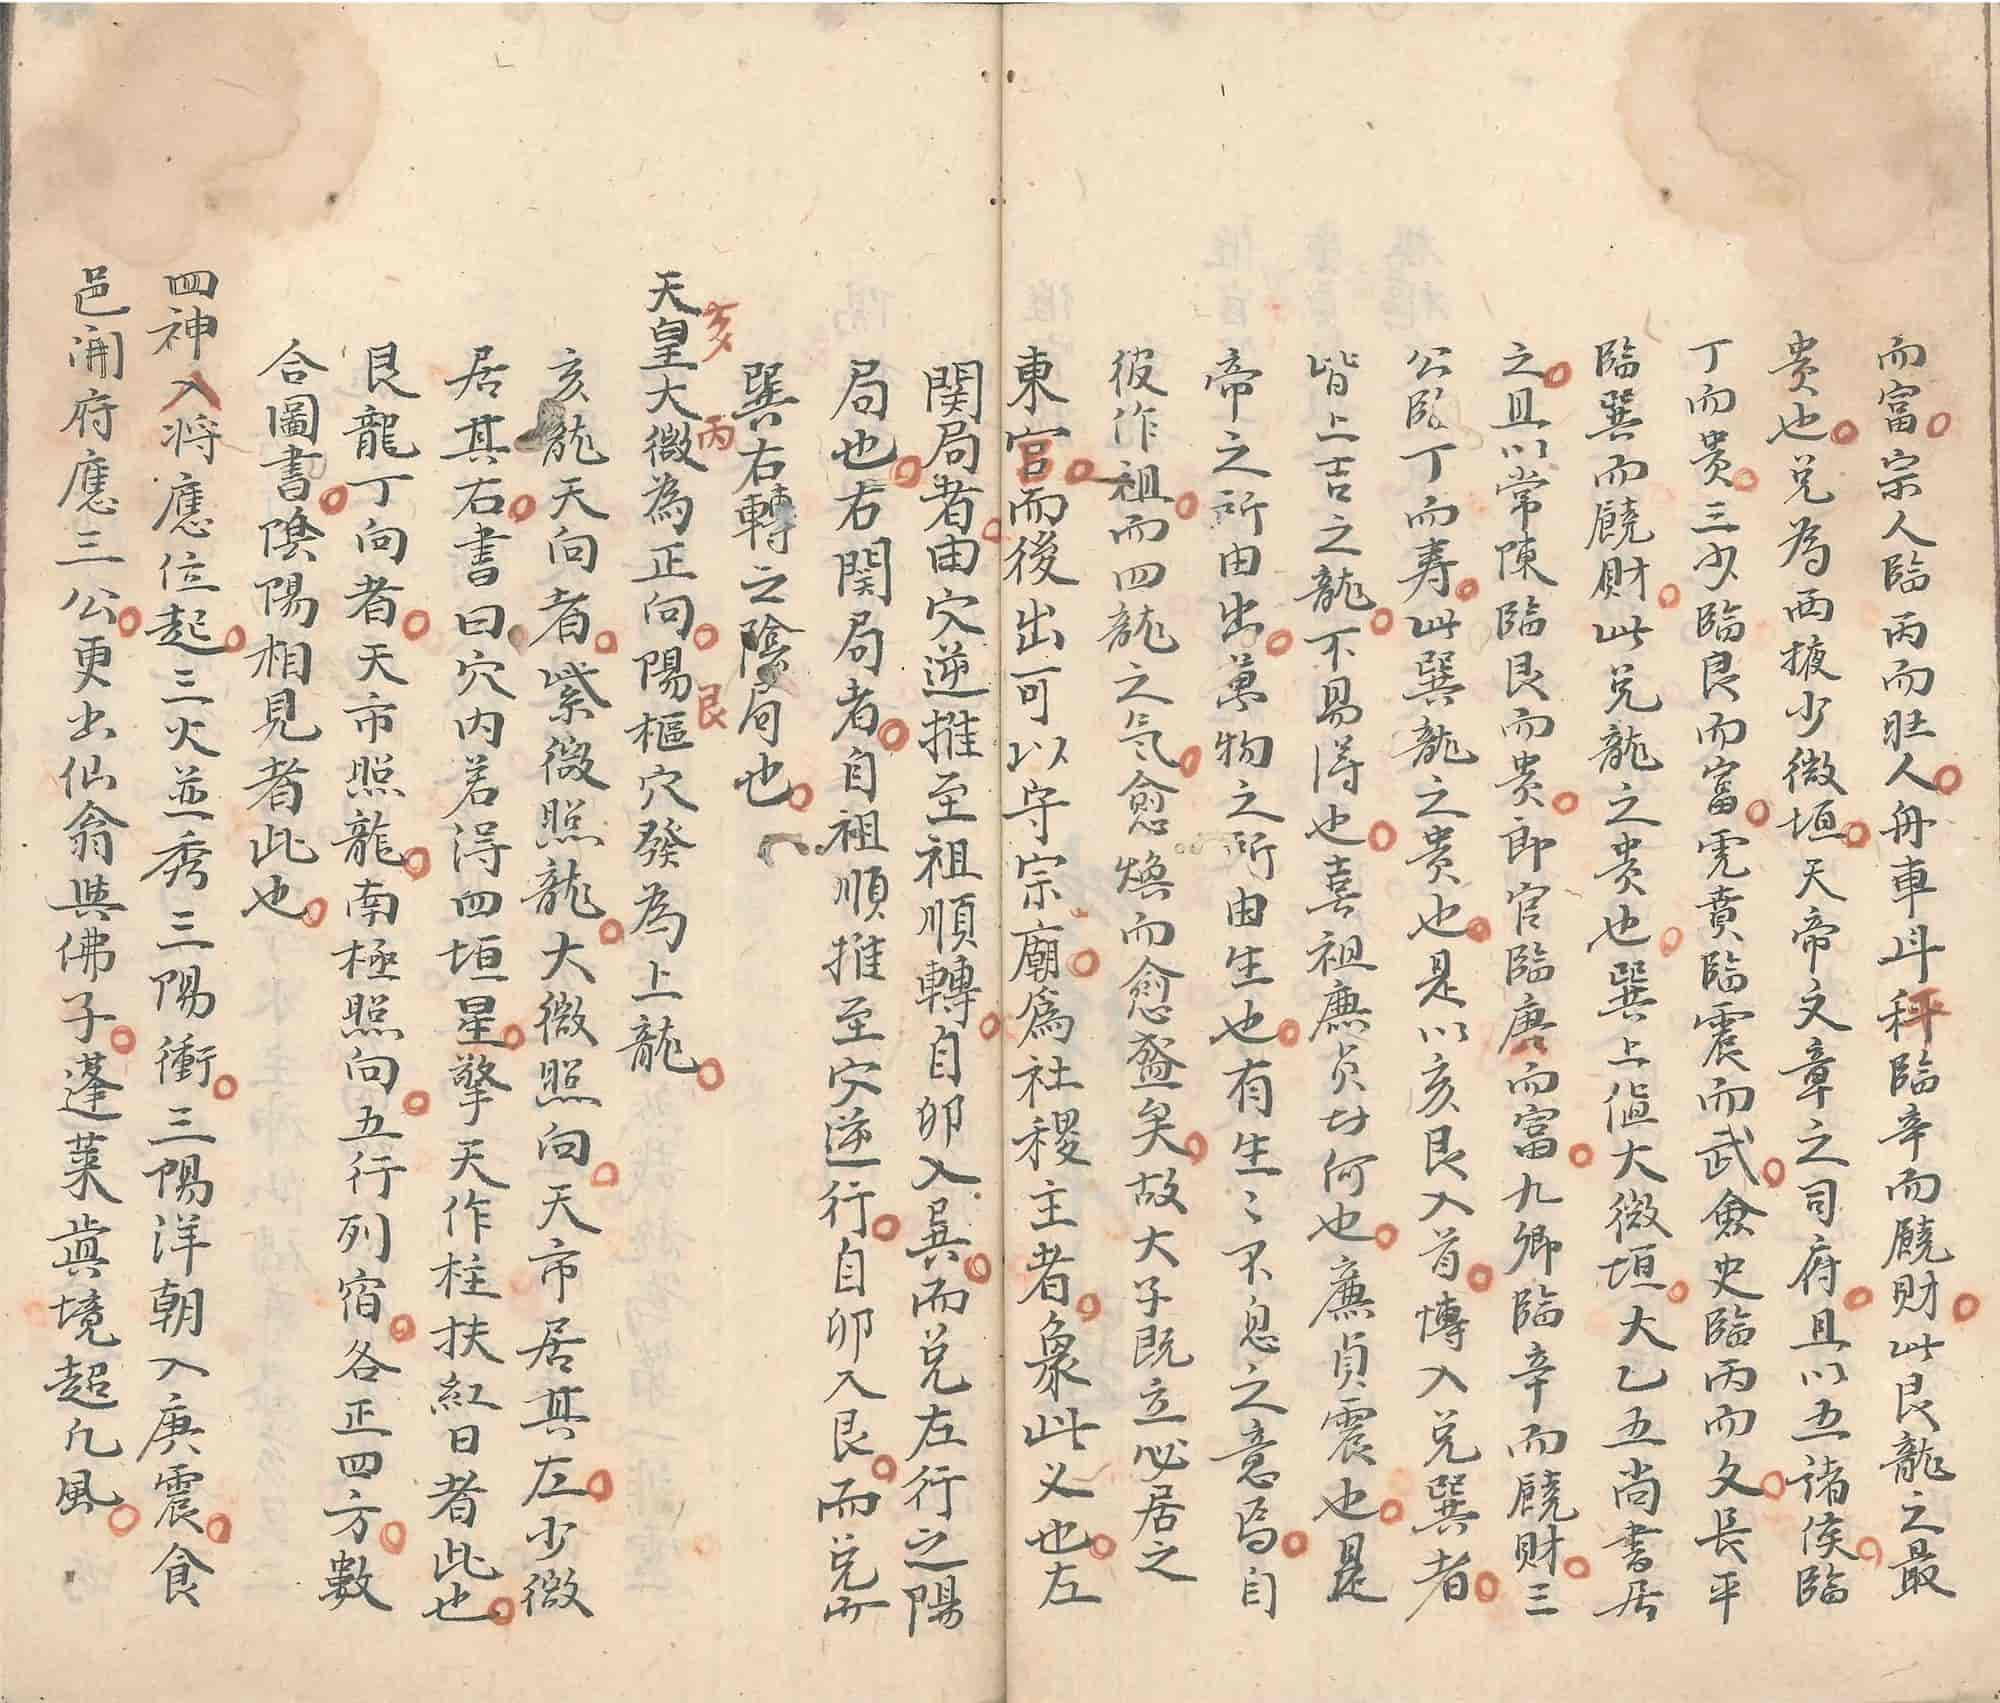 而富宗人臨丙而旺人舟車斗秤臨辛而饒財此艮龍之最
贵也兑為西掖少微垣天帝文章之司府且以五諸侯臨
丁而贵三少臨艮而富虎賁臨震而武僉史臨丙而文長平
臨巽而饒財此兑龍之贵也巽上値大微垣大乙五尚書居
之且以常陳臨艮而贵郎官臨庚而富九卿臨辛而饒財三
公臨丁而寿此巽龍之贵也是以亥艮入首慱入兑巽者
皆上吉之龍不易得也喜祖廉贞者何也廉貞震也是
帝之所由出萬物之所由生也有生〻不息之意焉自
彼作祖而四龍之气愈煥而愈盛矣故大子既立必居之
東宫而後出可以守宗廟爲社稷主者象此义也左
関局者由穴逆推至祖順轉自卯入巽而兑左行之陽
局也右関局者自祖順推至穴逆行自卯入艮而兑而
巽右轉之陰局也
天皇大微為正向陽樞穴發為上龍
亥 丙 艮
亥龍天向者紫微照龍大微照向天市居其左少微
居其右書曰穴内若淂四垣星擎天作柱扶紅日者此也
艮龍丁向者天市照龍南極照向五行列宿各正四方數
合圖書陰陽相見者此也
四神入将應位起三火並秀三陽衝三陽洋朝入庚震食
邑開府應三公更出仙翁與佛子蓬萊眞境超凢風